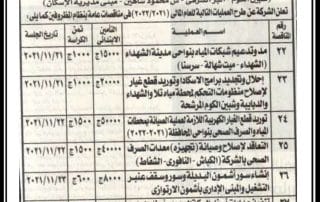 تعلن الشركة عن طرح العمليات التالية للعام المالى (٢٠٢٢/٢٠٢١) فى مناقصات عامة بنظام المظروفين كما يلى:
رقم مناقصة
اسم العملية
التأمين الابتدائى
ثمن الكراسة
تاريخ الجلسة
٢٢
مد وتدعيم شبكات المياه بنواحى مدينة الشهداء
(الشهداء - ميت شهالة - سرسنا)
١٥٠٠
٢٠٢١/١١/٢١
٢٣
إحلال وتجديد برامج الاسكادا وتوريد قطع غيار
لإصلاح منظومات التحكم لمحطة مياه تلا والشهداء
والديابية وشبين الكوم المرشحة
١٥٠٠
٢٠٢١/١١/٢٢
٢٤
توريد قطع الغيار الكهربية اللازمة لعملية الصيانة بمحطات
المياه والصرف الصحى بنواحى المحافظة (٢٠٢٢-٢٠٢١)
١٠٠٠
٢٠٢١/١١/٢٢
٢٥
التعاقد لإصلاح وصيانة (تجهيزه) معدات الصرف
الصحى بالشركة (الكباش - النافورى - الشفاط)
٥٠٠٠٠
١٥٠٠
٢٠٢١/١١/٢٣
٢٦
إنشاء سور أشمون البديلة وسور وسقف عنبر
التشغيل والمبنى الإدارى بأشمون الارتوازى
٢٠٠٠٠
٦٠٠
٢٠٢١/١١/٢٣